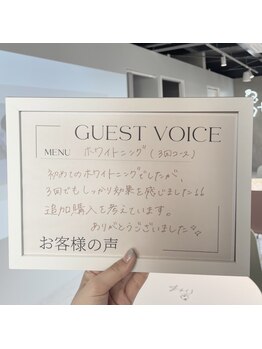 GUEST VOICE
MENU ホワイトニング(3回コース)
初めてのホワイトニングでしたが、
3回でもしっかり効果を感じました!!
追加購入を考えています。
ありがとうございました
お客様の声